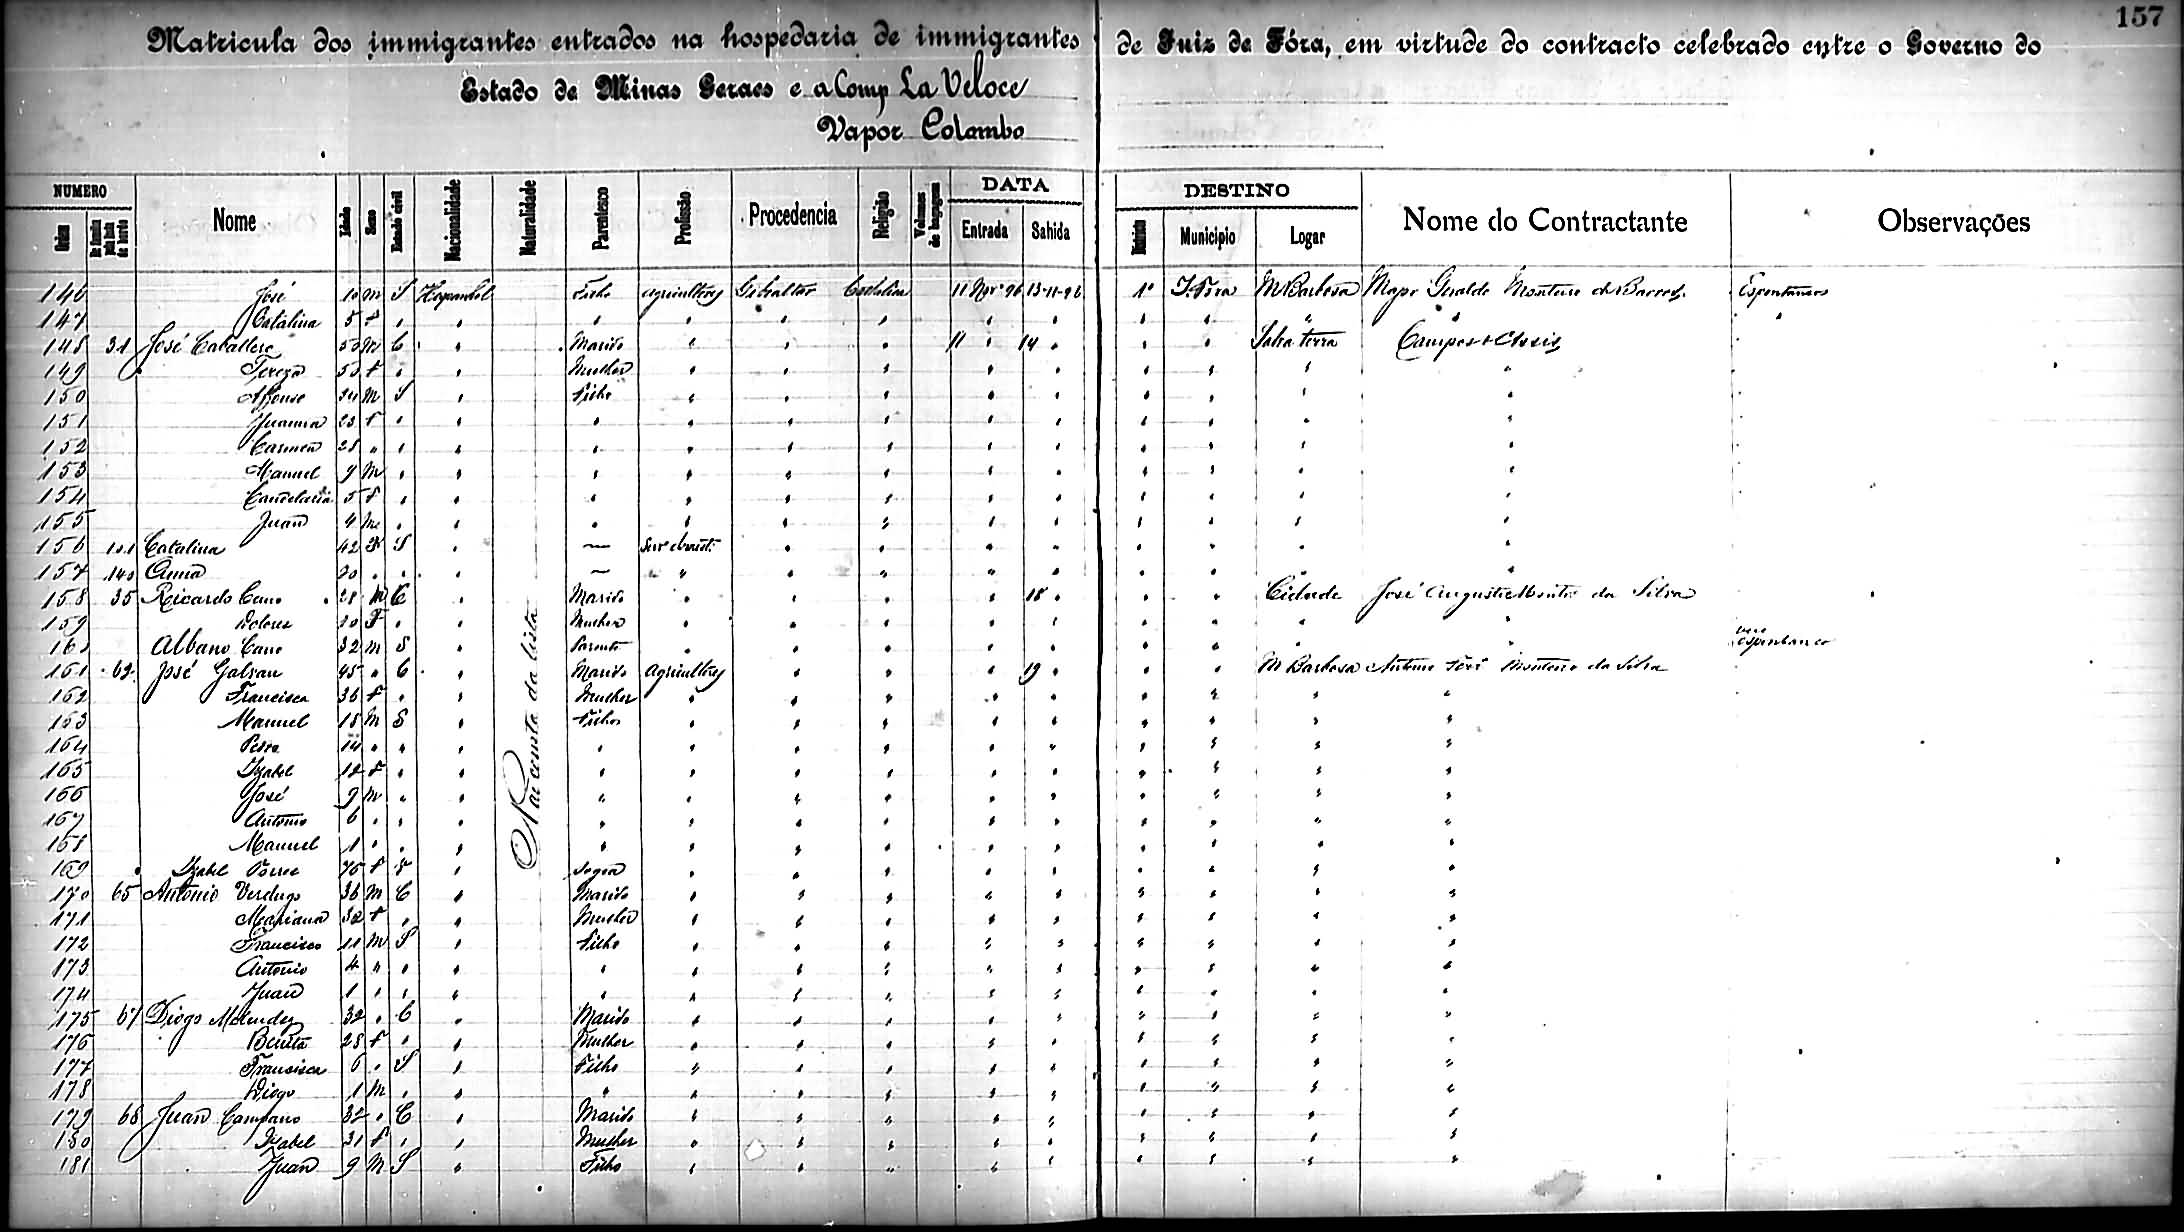 157
Matricula dos immigrantes entrados na hospedaria de immigrantes de Juiz de Fóra, em virtude do contracto celebrado entre o Governo do
Estado de Minas Geraes e a Comp La Veloce
Vapor Colombo
NUMERO Nome Idade Sexo Estado civil Nacionalidade Naturalidade Parentesco Profissão Procedencia Religião Volumes de bagagem DATA DESTINO Nome do Contractante Observações
Ordem De familia pela lista de bordo Entrada Sahida Districto Municipio Logar
146 José 10 m S Hespanhol Filho agricultores Gibraltar Catholica 11 Nov 96 13-11-96 1º J. Fora M Barbosa Major Geraldo Monteiro de Barros Espontaneos
147 Catalina 5 f " " " " " " " " " " " " "
148 31 José Caballero 53 m C " Marido " " " 11 " 14 " " " Campos & Assis
149 Tereza 53 f " " Mulher " " " " " " " " "
150 Affonso 24 m S " Filho " " " " " " " " "
151 Juanna 23 f " " " " " " " " " " " "
152 Carmen 28 " " " " " " " " " " " " "
153 Manuel 9 m " " " " " " " " " " " "
154 Candelaria 5 f " " " " " " " " " " " "
155 Juan 4 m " " " " " " " " " " " "
156 101 Catalina 42 F S " — " " " " " " " "
157 140 Anna 20 " " " — " " " " " " " " "
158 35 Ricardo Cano 28 m C " Marido " " " " 18 " " " Cidade José Augusto Monteiro da Silva
159 Dolores 20 F " " Mulher " " " " " " " " "
160 Albano Cano 32 m S " Parente " " " " " " " " " espontaneo
161 62 José Galvan 45 " C " Marido agricultores " " " 19 " " " M Barbosa Antonio José Monteiro da Silva
162 Francisca 36 f " " Mulher " " " " " " " " "
163 Manuel 18 m S " Filhos " " " " " " " " "
164 Pedro 14 " " " " " " " " " " " " "
165 Izabel 12 f " " " " " " " " " " " "
166 José 9 m " " " " " " " " " " " "
167 Antonio 6 " " " " " " " " " " " " "
168 Manuel 1 " " " " " " " " " " " " "
169 Izabel Torres 75 f " Sogra " " " " " " " " "
170 65 Antonio Verdugo 36 m C " Marido " " " " " " " " "
171 Mariana 32 f " " Mulher " " " " " " " " "
172 Francisco 11 m S " Filho " " " " " " " " "
173 Antonio 4 " " " " " " " " " " " " "
174 Juan 1 " " " " " " " " " " " " "
175 67 Diogo Melendez 32 " C " Marido " " " " " " " " "
176 Benita 28 f " " Mulher " " " " " " " " "
177 Francisca 6 " S " Filho " " " " " " " " "
178 Diogo 1 m " " " " " " " " " " " "
179 68 Juan Campano 32 " C " Marido " " " " " " " " "
180 Izabel 31 f " " Mulher " " " " " " " " "
181 Juan 9 m S " Filho " " " " " " " " "
Não consta da lista